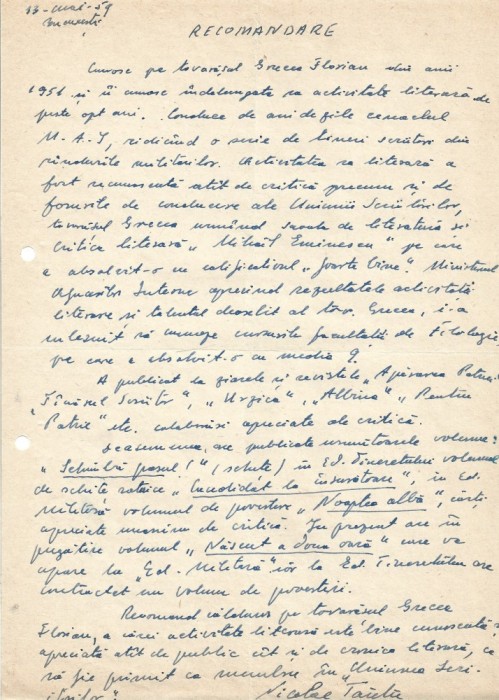 13-mai-59
București
RECOMANDARE
Cunosc pe tovarășul Grecea Florian din anii
1951 și îi cunosc îndelungata sa activitate literară de
peste opt ani. Conduce de ani de zile cenaclul
M.A.I, ridicînd o serie de tineri scriitori din
rîndurile militărilor. Activitatea sa literară a
fost recunoscută atît de critică precum și de
forurile de conducere ale Uniunii Scriitorilor,
tovarășul Grecea urmînd școala de literatură și
critică literară „Mihail Eminescu" pe care
a absolvit-o cu calificativul „foarte bine". Ministerul
Afacerilor Interne apreciind rezultatele activității
literare și talentul deosebit al tov. Grecea, i-a
înlesnit să urmeze cursurile facultății de Filologie
pe care a absolvit-o cu media 9.
A publicat la ziarele și revistele „Apărarea Patriei"
"Tînărul Scriitor", „Urzica", „Albina", „Pentru
Patrie" etc. colaborări apreciate de critică.
Deasemenea, are publicate următoarele volume:
„Schimbă pasul!" (schițe) în Ed. Tineretului volumul
de schițe satirice „Candidat la însurătoare", în Ed.
Militară volumul de povestiri „Noaptea albă", cărți
apreciate unanim de critică. În prezent are în
pregătire volumul „Născut a doua oară" care va
apare la „Ed. Militară" iar la Ed. Tineretului are
contractat un volum de povestiri.
Recomand călduros pe tovarășul Grecea
Florian, a cărei activitate literară este bine cunoscută și
apreciată atît de public cît și de cronica literară, ca
să fie primit ca membru în „Uniunea Scri-
itorilor".
Nicolae